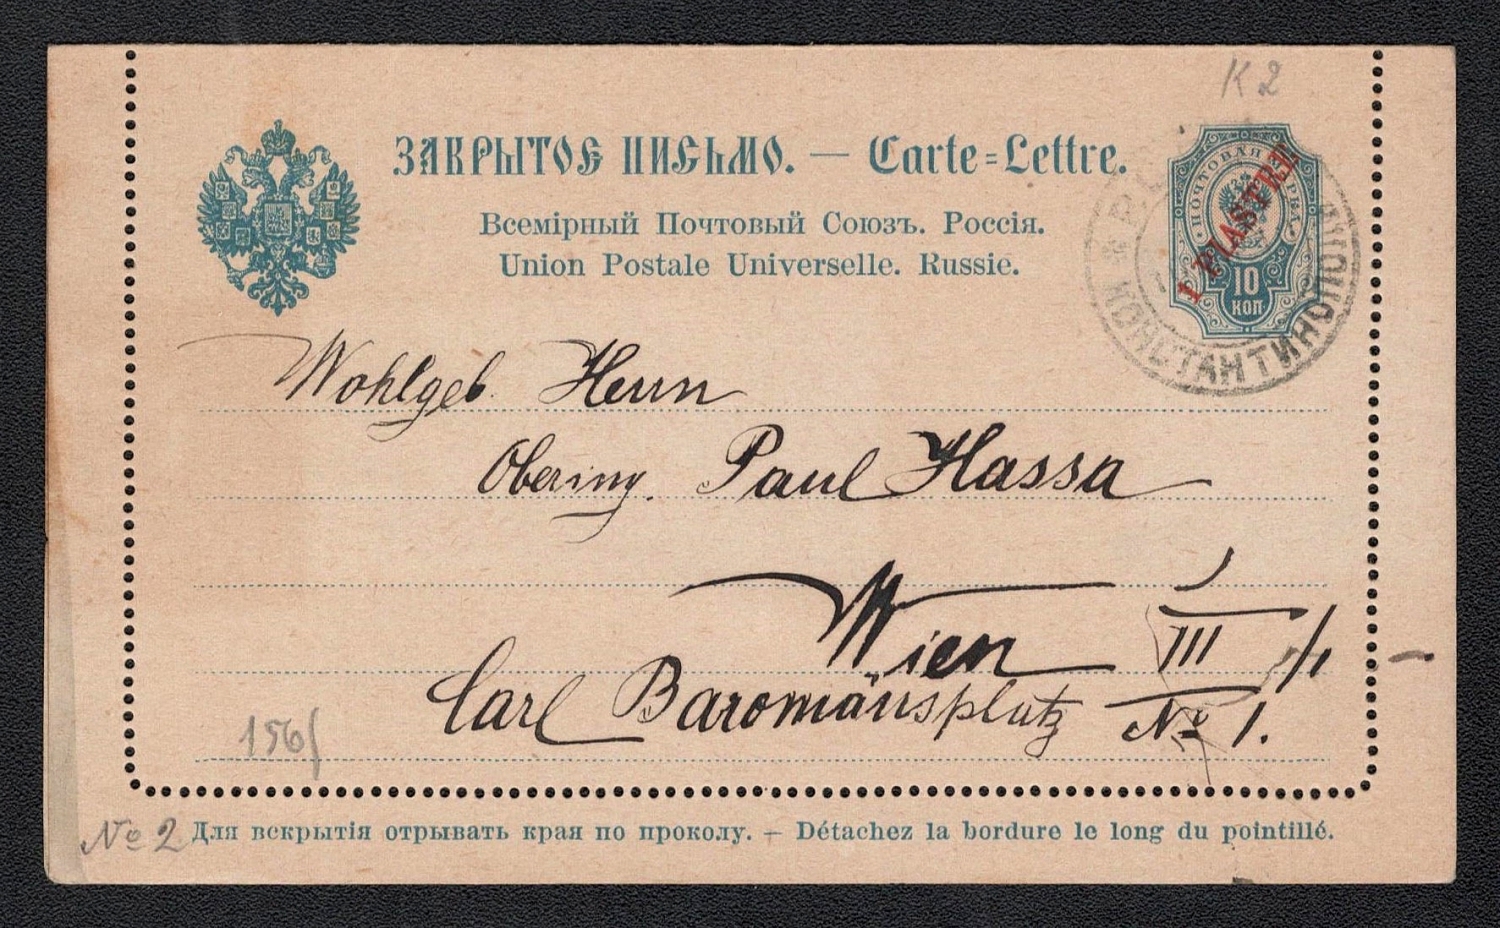 К 2
ЗАКРЫТОЕ ПИСЬМО. — Carte=Lettre.
Всемірный Почтовый Союзъ. Россія.
Union Postale Universelle. Russie.
ПОЧТОВАЯ МАРКА
1 PIASTRE
10
КОП
КОНСТАНТИНОПОЛЬ
Wohlgeb. Herrn
Obering. Paul Hassa
Wien III/1
Carl Baromäusplatz № 1.
156
№ 2
Для вскрытія отрывать края по проколу. — Détachez la bordure le long du pointillé.